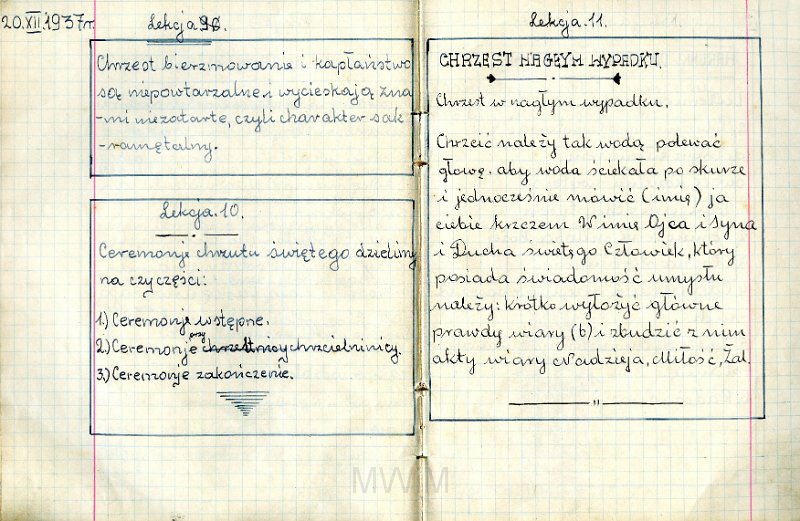 20.XII.1937r.
Lekcja 9.
Chrzest bierzmowanie i kapłaństwo
są niepowtarzalne, i wycieskają zna
-mi niezatarte, czyli charakter sak
-ramętalny.
Lekcja. 10.
Ceremonje chrzutu świętego dzielimy
na czyczęści:
1.) Ceremonje wstępne.
2.) Ceremonje przy chrzestnicy chrzcielninicy.
3.) Ceremonje zakończenie.
Lekcja. 11.
CHRZEST NAGŁYM WYPADKU.
Chrzest w nagłym wypadku.
Chrzcić należy tak wodą polewać
głowę, aby woda ściekała po skurze
i jednocześnie mówić (imię) ja
ciebie krzczem W imię Ojca i Syna
i Ducha świetęgo Człowiek, który
posiada świadomość umysłu
należy: krótko wyłożyć główne
prawdy wiary (6) i zbudzić z nim
akty wiary Nadzieja, Miłość, Żal.
MWM